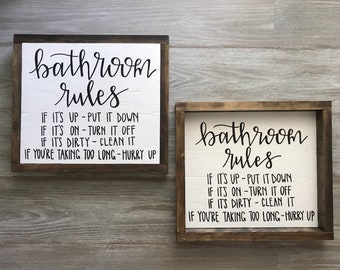 bathroom
rules
IF IT'S UP - PUT IT DOWN
IF IT'S ON - TURN IT OFF
IF IT'S DIRTY - CLEAN IT
IF YOU'RE TAKING TOO LONG - HURRY UP
bathroom
rules
IF IT'S UP - PUT IT DOWN
IF IT'S ON - TURN IT OFF
IF IT'S DIRTY - CLEAN IT
IF YOU'RE TAKING TOO LONG - HURRY UP